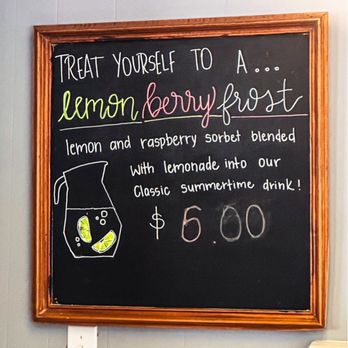 TREAT YOURSELF TO A...
lemon berry frost
lemon and raspberry sorbet blended
With lemonade into our
Classic summertime drink!
$ 6.00